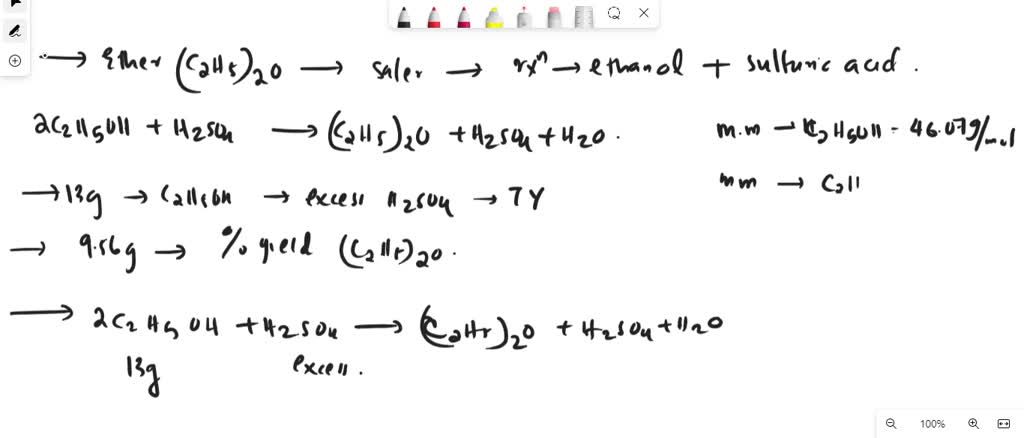 → Ether (C2H5)2O → saler → rxn → ethanol + sulfuric acid.
2C2H5OH + H2SO4 → (C2H5)2O + H2SO4 + H2O.
m.m → C2H5OH = 46.07g/mol
→ 13g → C2H5OH → excess H2SO4 → TY
mm → C2H
→ 9.56g → % yield (C2H5)2O.
→ 2C2H5OH + H2SO4 → (C2H5)2O + H2SO4 + H2O
13g excess.
100%